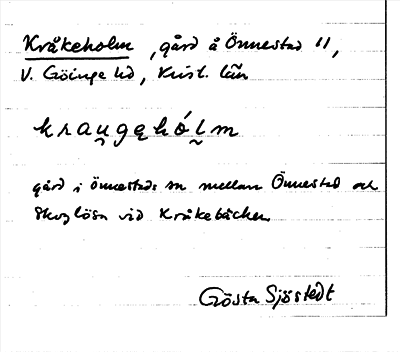 Kråkeholm, gård å Önnestad 11,
V. Göinge hd, Krist. län
kraugehólm
gård i Önnestads sn mellan Önnestad och
Skoglösa vid Kråkebäcken.
Gösta Sjöstedt